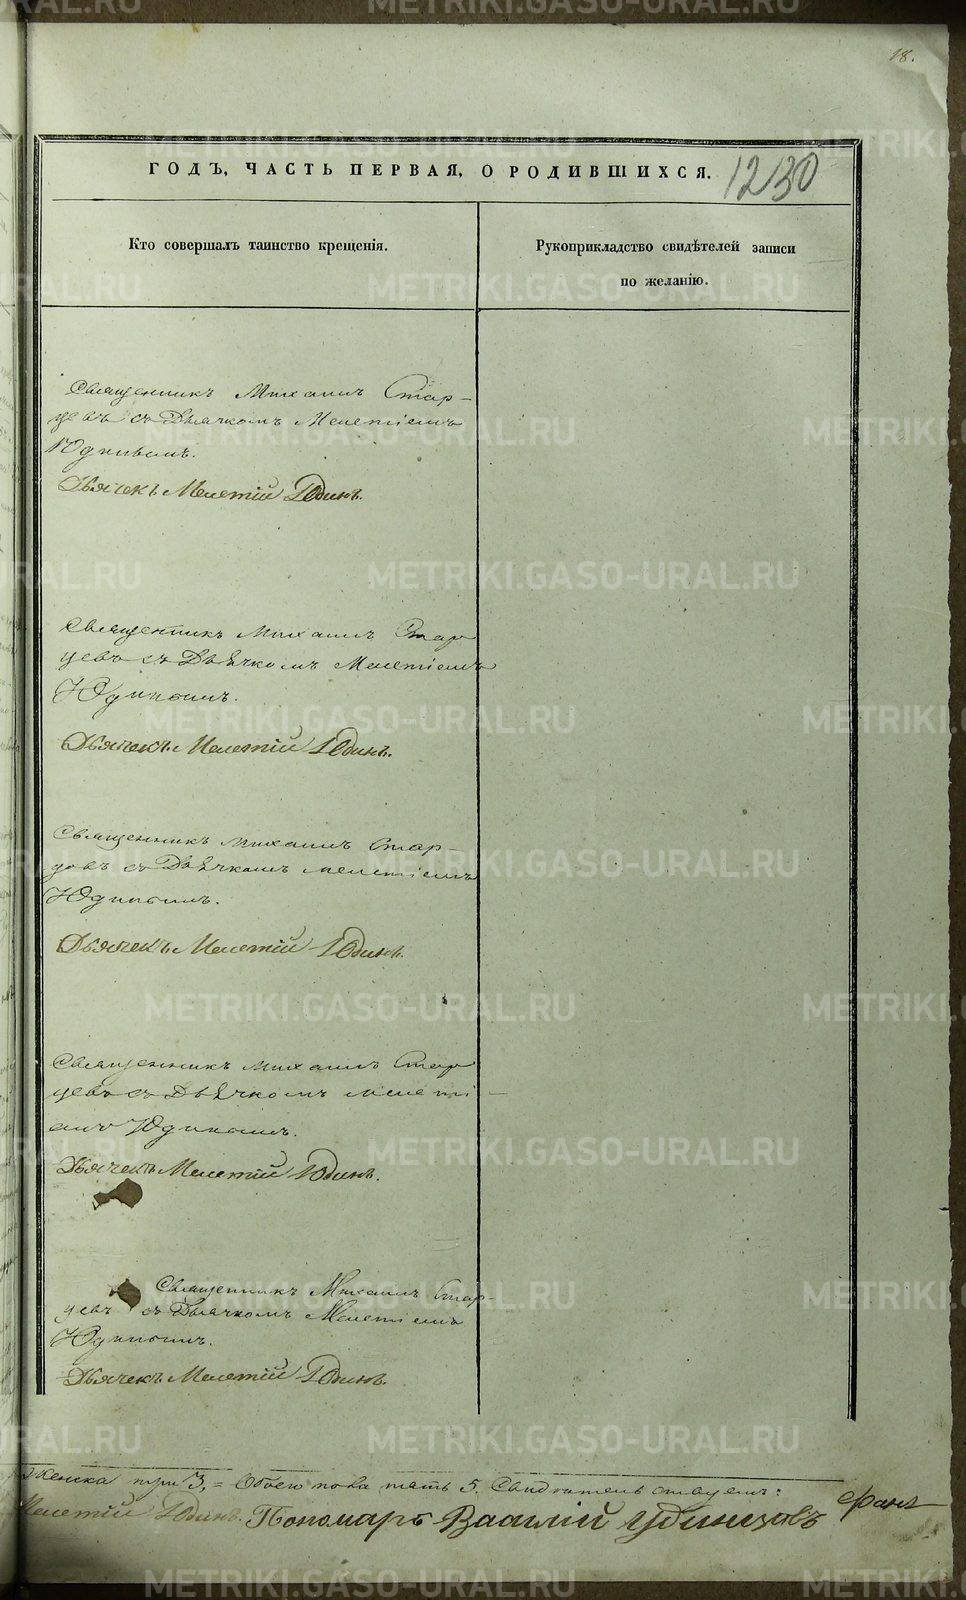 18.
ГОДЪ, ЧАСТЬ ПЕРВАЯ, О РОДИВШИХСЯ.
1230
Кто совершалъ таинство крещенія.
Рукоприкладство свидѣтелей записи
по желанію.
Священникъ Михаилъ Стар-
цевъ съ Дьячкомъ Мелетіемъ
Юдинымъ.
Дьячекъ Мелетій Юдинъ.
Священникъ Михаилъ Стар
цевъ съ Дьячкомъ Мелетіемъ
Юдинымъ.
Дьячекъ Мелетій Юдинъ.
Священникъ Михаилъ Стар-
цовъ съ Дьячкомъ Мелетіемъ
Юдинымъ.
Дьячекъ Мелетій Юдинъ.
Священникъ Михаилъ Стар
цевъ съ Дьячкомъ Мелеті
емъ Юдинымъ.
Дьячекъ Мелетій Юдинъ.
Священникъ Михаилъ Стар-
цевъ съ Дьячкомъ Мелетіемъ
Юдинымъ.
Дьячекъ Мелетій Юдинъ.
Женска три 3, = Обоего пола пять 5.
Мелетій Юдинъ. Пономарь Василій Удинцовъ
METRIKI.GASO-URAL.RU